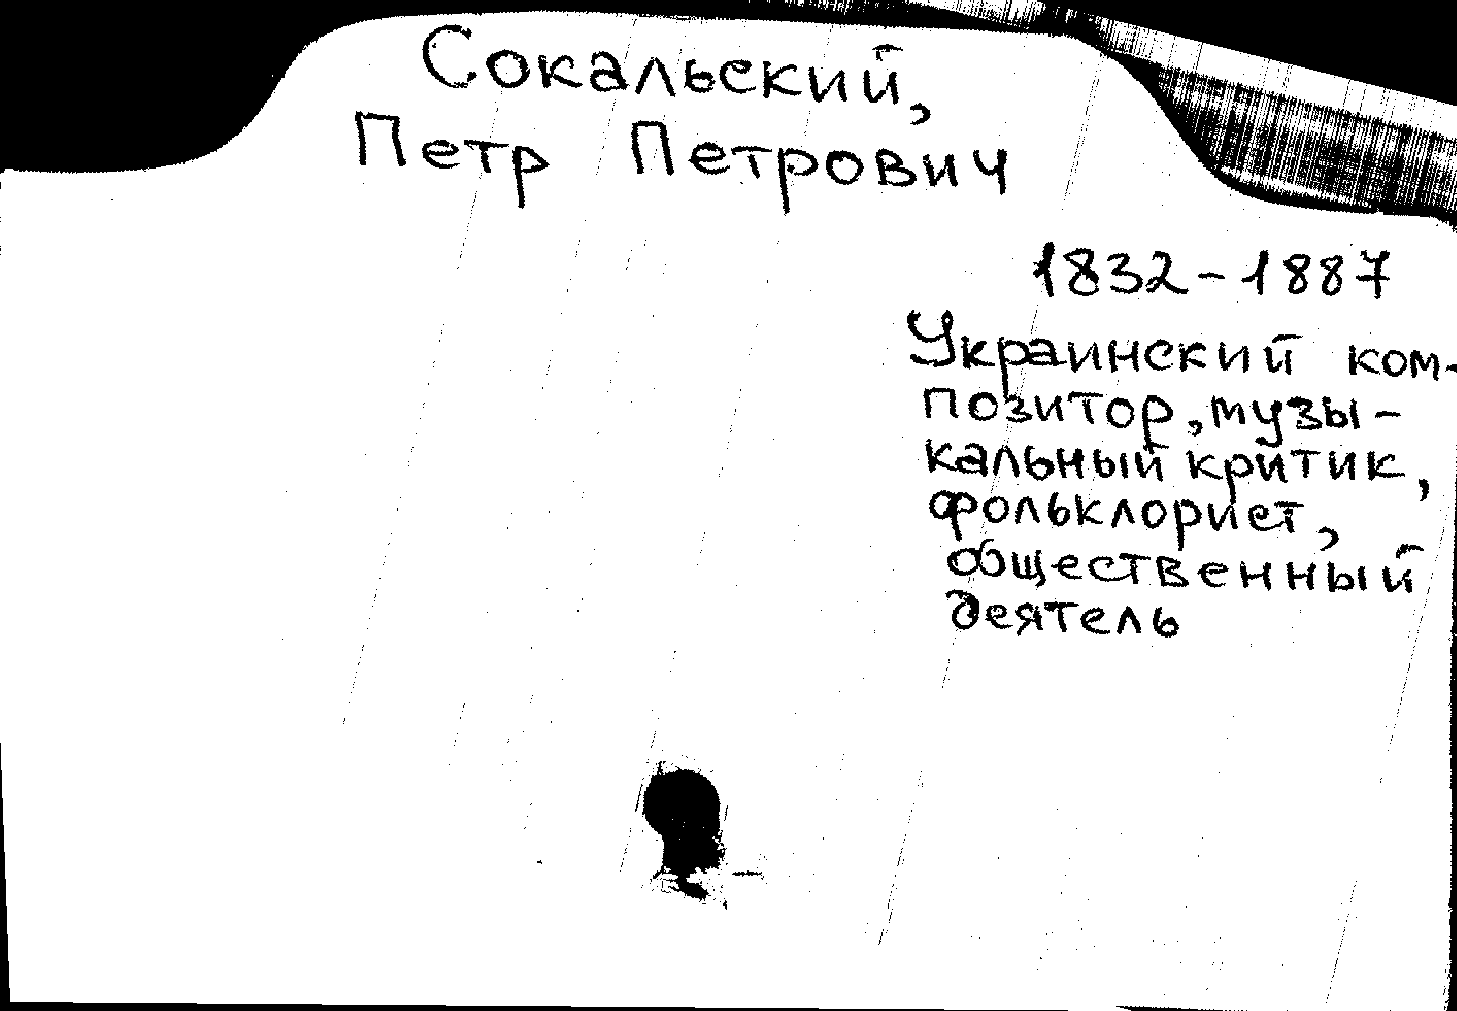 Сокальский,
Петр Петрович
1832-1887
Украинский ком-
позитор, музы-
кальный критик,
фольклорист,
общественный
деятель